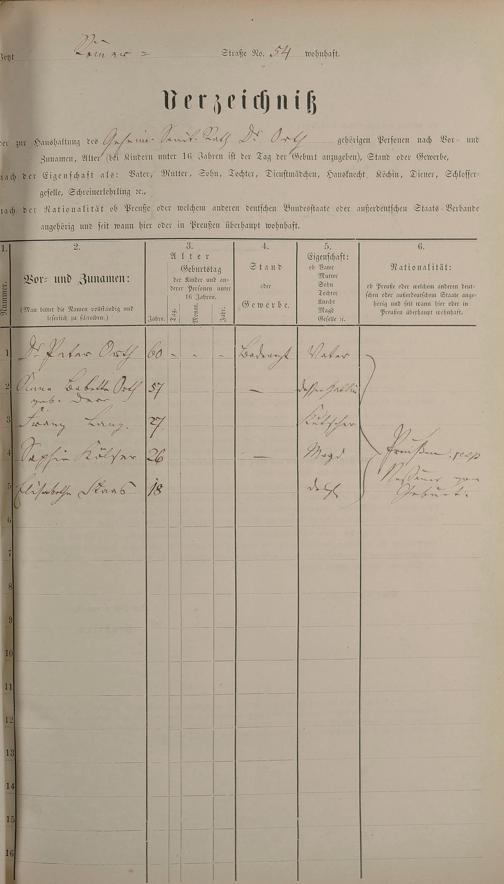 Römer= Straße No. 54 wohnhaft.
Verzeichniß
der zur Haushaltung des Geheim. Sanit. Rath Dr Orth gehörigen Personen nach Vor- und
Zunamen, Alter (bei Kindern unter 16 Jahren ist der Tag der Geburt anzugeben), Stand oder Gewerbe,
nach der Eigenschaft als: Vater, Mutter, Sohn, Tochter, Dienstmädchen, Hausknecht, Köchin, Diener, Schlosser-
geselle, Schreinerlehrling ꝛc.,
nach der Nationalität ob Preuße oder welchem anderen deutschen Bundesstaate oder außerdeutschen Staats-Verbande
angehörig und seit wann hier oder in Preußen überhaupt wohnhaft.
1. 2. 3. 4. 5. 6.
Nummer.
Vor- und Zunamen:
(Man bittet die Namen vollständig und
leserlich zu schreiben.)
Alter
Geburtstag
der Kinder und an-
derer Personen unter
16 Jahren.
Jahre. Tag. Monat. Jahr.
Stand
oder
Gewerbe.
Eigenschaft:
ob Vater
Mutter
Sohn
Tochter
Knecht
Magd
Geselle ꝛc.
Nationalität:
ob Preuße oder welchem anderen deut-
schen oder außerdeutschen Staate ange-
hörig und seit wann hier oder in
Preußen überhaupt wohnhaft.
1 Dr Peter Orth 60 - - - Badearzt Vater
2 Anna Babette Orth 57 — dessen Gattin
geb.
3 Franz Lang. 27 Kutscher
4 Sophie Kölser 26 — Magd Preußen, resp
5 Elisabetha Staas 18 dto Nassauer von
Geburt.
6
7
8
9
10
11
12
13
14
15
16